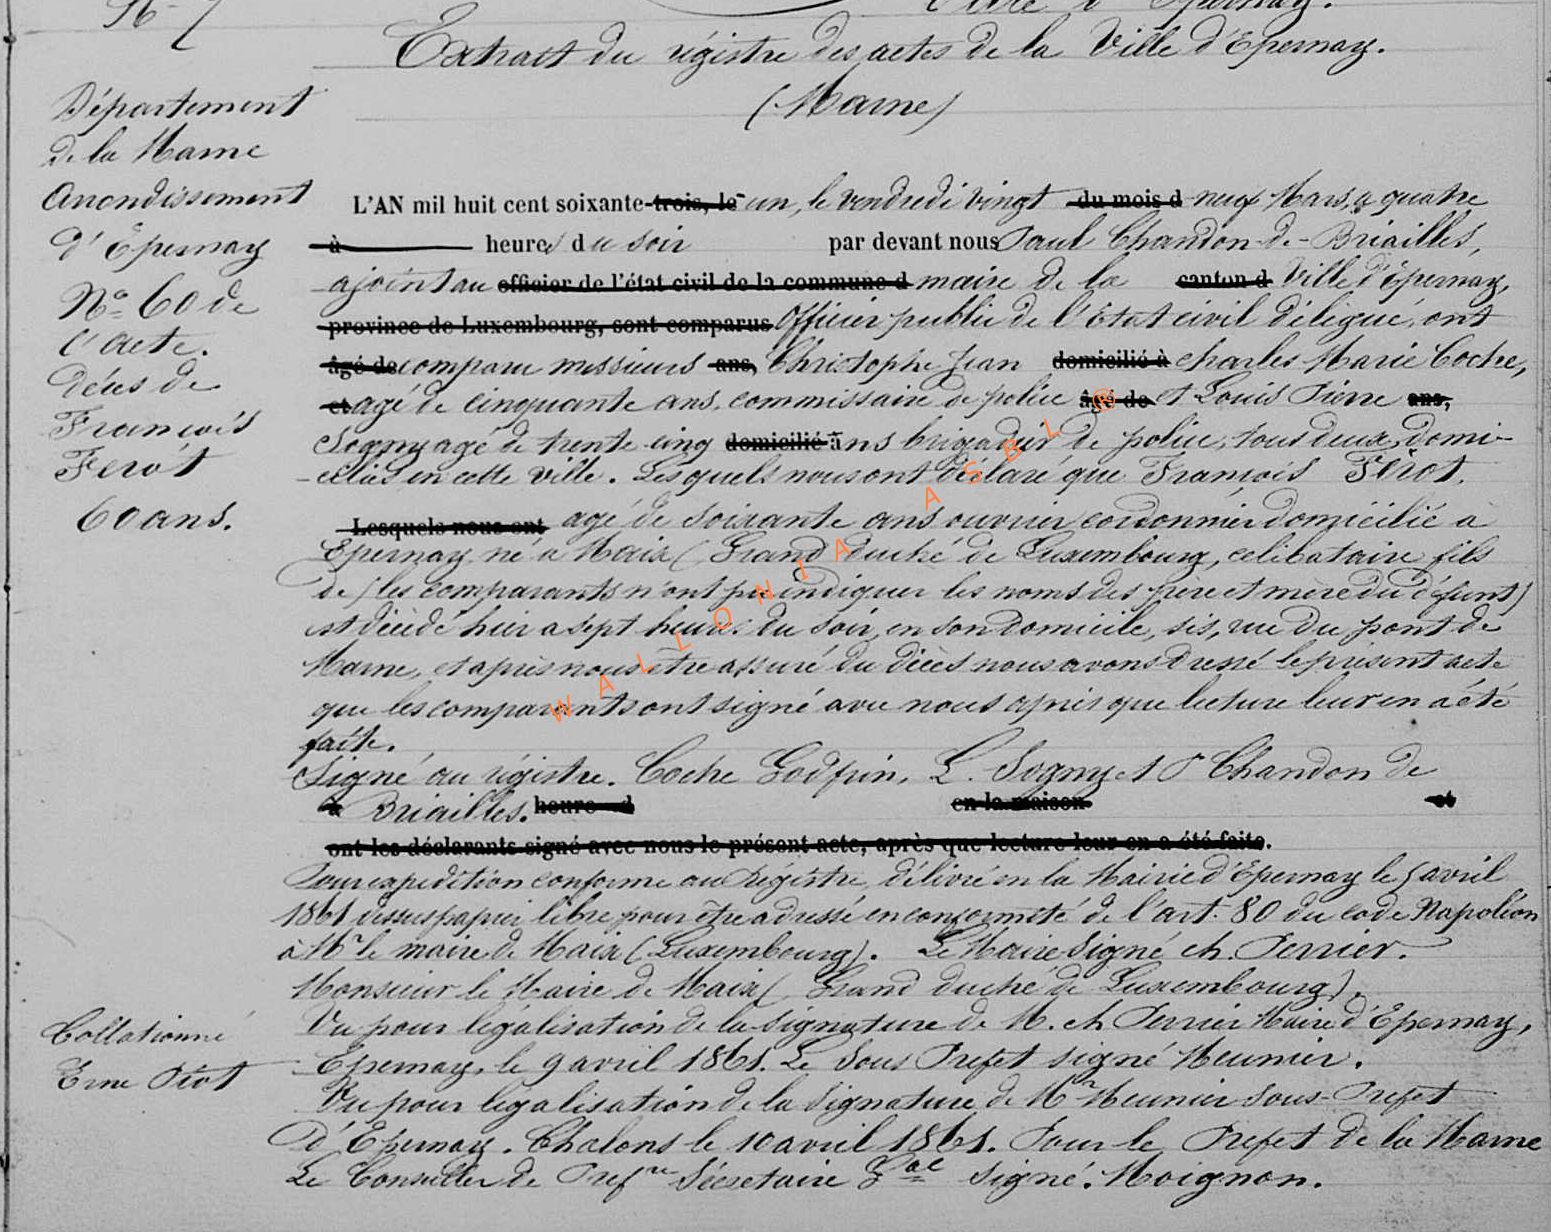 N° 7
Extrait du régistre des actes de la Ville d'Epernay.
(Marne)
Département
de la Marne
Arrondissement
d'Epernay
N° 60 de
l'acte.
Décès de
François
Ferot
60 ans.
L'AN mil huit cent soixante-trois, le un, le vendredi vingt du mois d neuf Mars, a quatre
à heures du soir par devant nous Paul Chandon-de-Briailles,
ajoint au officier de l'état civil de la commune d maire de la canton d Ville d'Épernay,
province de Luxembourg, sont comparus Officier public de l'État civil délégué, ont
âgé de comparu messieurs ans, Christophe Jean domicilié à Charles Marie Coche,
et agé de cinquante ans, commissaire de police âgé de et Louis Pierre ans,
Sogny agé de trente cinq domicilié à ans brigadier de police, tous deux domi-
-ciliés en cette ville. Lesquels nous ont déclaré que François Férot.
Lesquels nous ont agé de soixante ans ouvrier cordonnier domicilié à
Epernay né à Maix (Grand duché de Luxembourg, celibataire fils
de (les comparants n'ont pu indiquer les noms des père et mère du défunt)
est décédé hier a sept heures du soir, en son domicile, sis, rue du pont de
Marne, et après nous être assuré du décès nous avons dressé le présent acte
que les comparants ont signé avec nous après que lecture leur en a été
faite.
Signé au régistre. Coche Godfrin, L. Sogny et P Chandon de
à Briailles. heure d en la maison et
ont les déclarants signé avec nous le présent acte, après que lecture leur en a été faite.
Pour expedition conforme au Régistre, délivré en la Mairie d'Epernay le 5 avril
1861 dessus papier libre pour être adressé en conformité de l'art. 80 du code Napoléon
à Mr le maire de Maix (Luxembourg). Le Maire Signé ch. Perrier.
Monsieur le Maire de Maix (Grand duché de Luxembourg).
Vu pour légalisation de la signature de M. ch Perrier Maire d'Épernay,
Epernay, le 9 avril 1861. Le Sous Prefet signé Meunier.
Vu pour légalisation de la signature de Mr Meunier Sous-Prefet
d'Épernay. Chalons le 10 avril 1861. Pour le Prefet de la Marne
Le Conseiller de Prefre Sécretaire Gal Signé. Moignon.
Collationné
WALLONIA ASBL ®